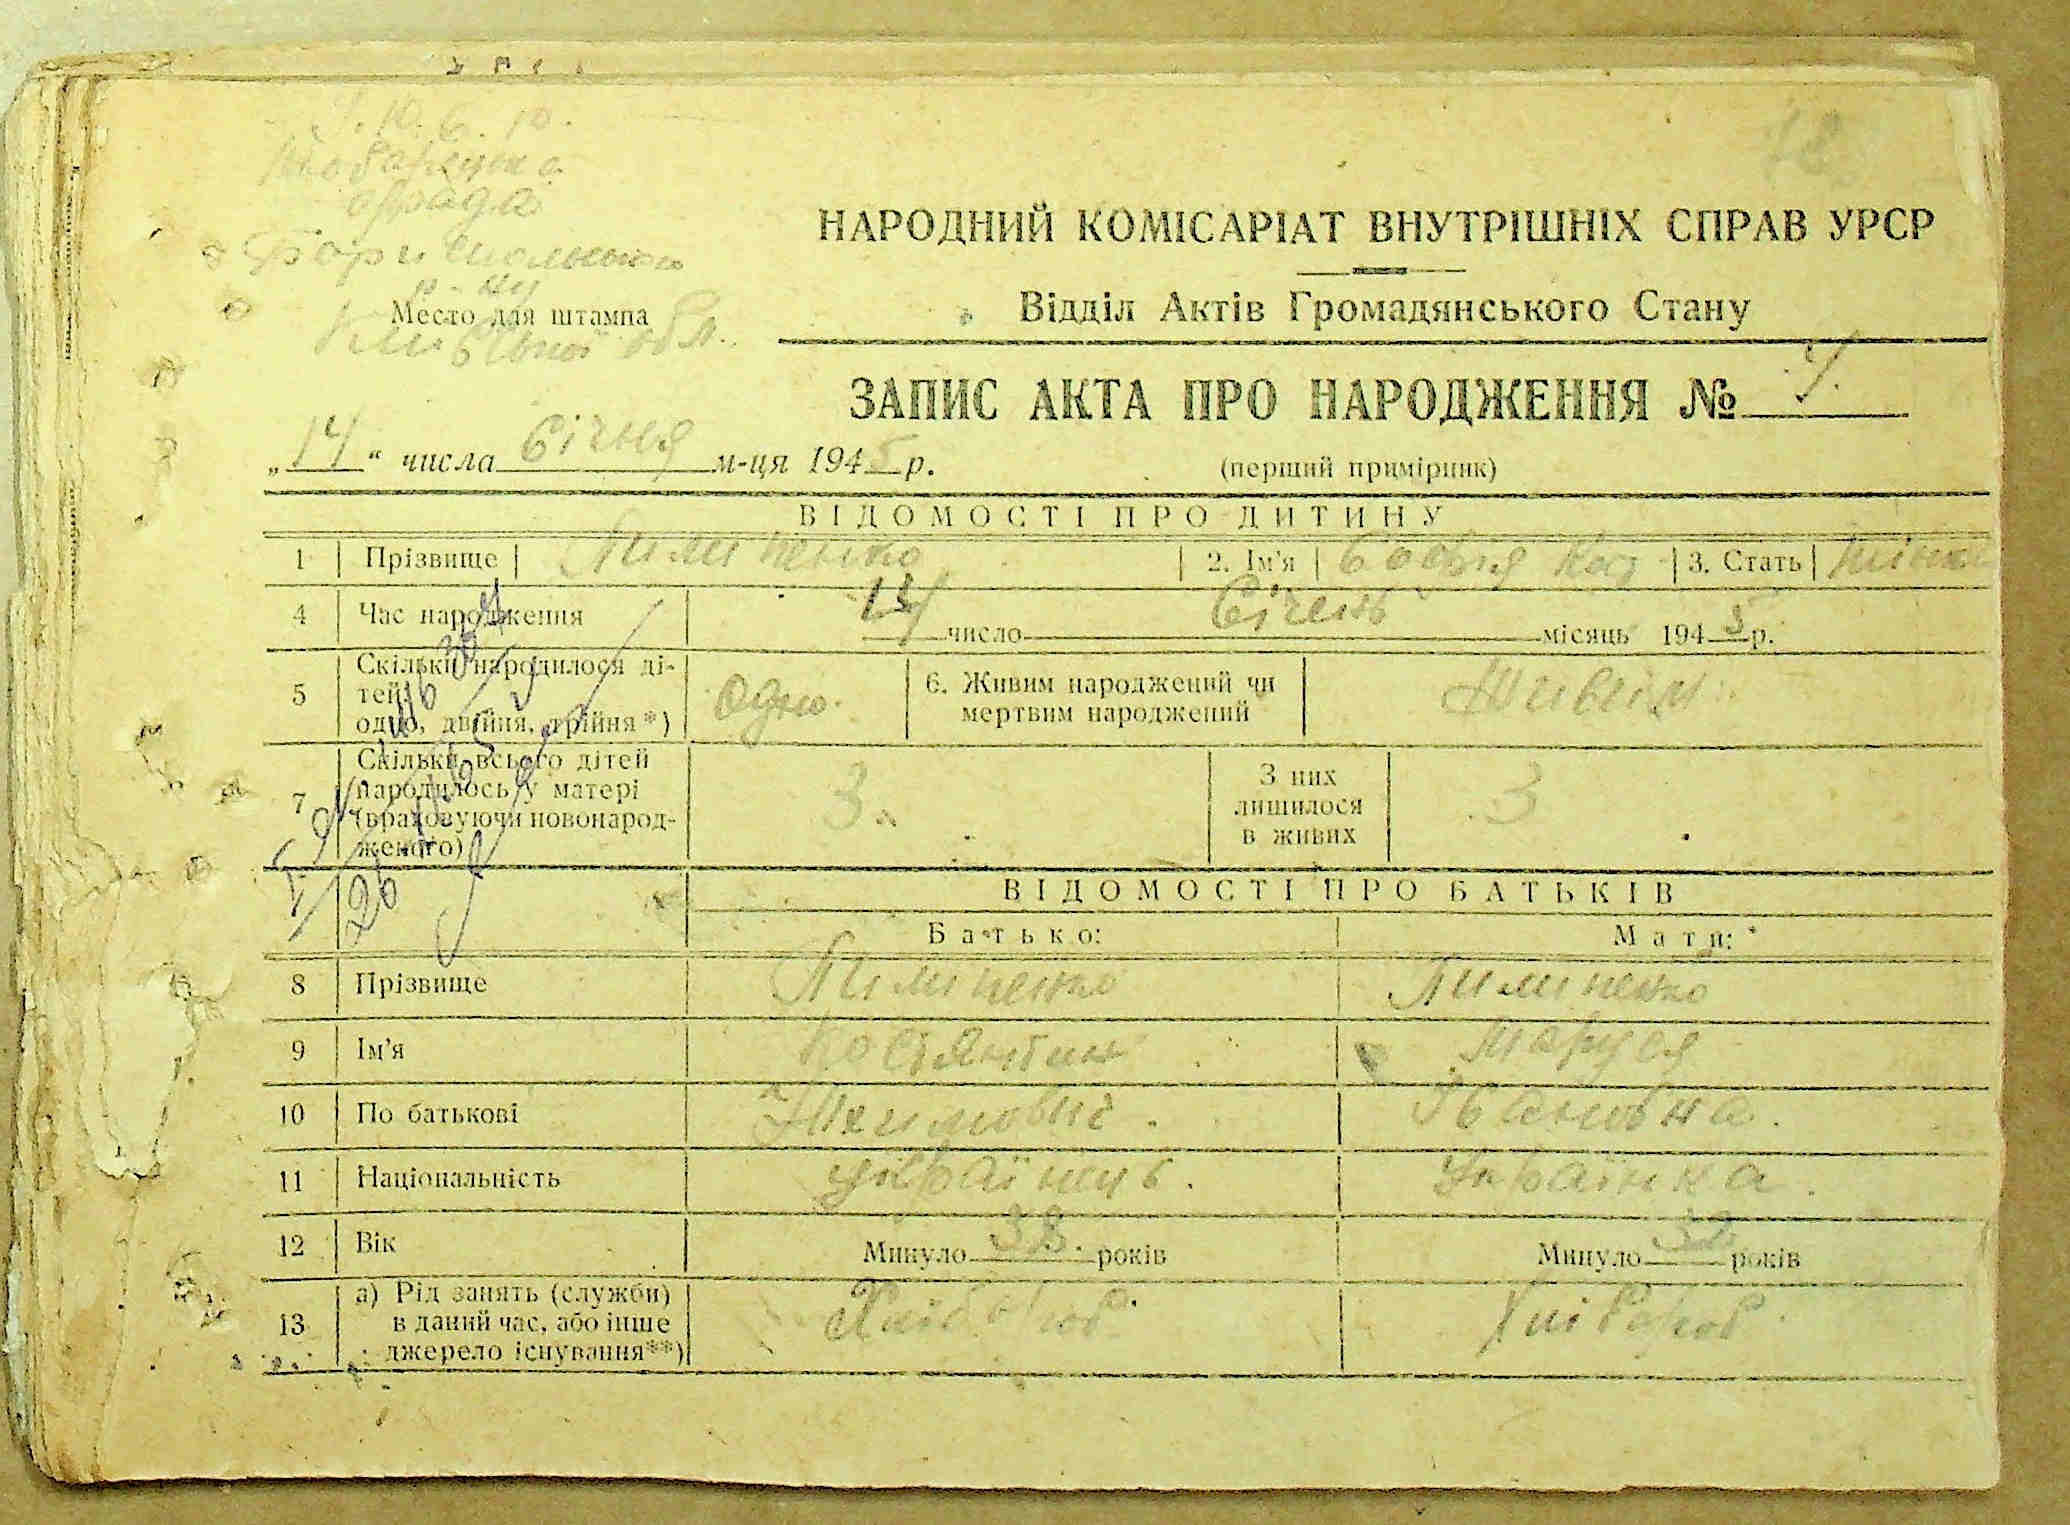 с/рада
Бориспольського
р-ну
Место для штампа
Київської обл.
НАРОДНИЙ КОМІСАРІАТ ВНУТРІШНІХ СПРАВ УРСР
Відділ Актів Громадянського Стану
ЗАПИС АКТА ПРО НАРОДЖЕННЯ №
„14“ числа Січня м-ця 1945 р.
(перший примірник)
ВІДОМОСТІ ПРО ДИТИНУ
1 Прізвище Пилипенко 2. Ім'я Софія 3. Стать
4 Час народження число Січень місяць 1945 р.
5 Скільки народилося ді-
тей:
одно, двійня, трійня*)
одно.
6. Живим народжений чи
мертвим народжений
Живим
7 Скільки всього дітей
народилось у матері
(враховуючи новонарод-
женого)
3.
З них
лишилося
в живих
3
26
ВІДОМОСТІ ПРО БАТЬКІВ
Батько: Мати:
8 Прізвище Пилипенко Пилипенко
9 Ім'я Костянтин Маруся
10 По батькові Якимович. Івановна.
11 Національність українць. Українка.
12 Вік Минуло 38. років Минуло років
13 а) Рід занять (служби)
в даний час, або інше
джерело існування**)
Хлібороб. Хлібороб.